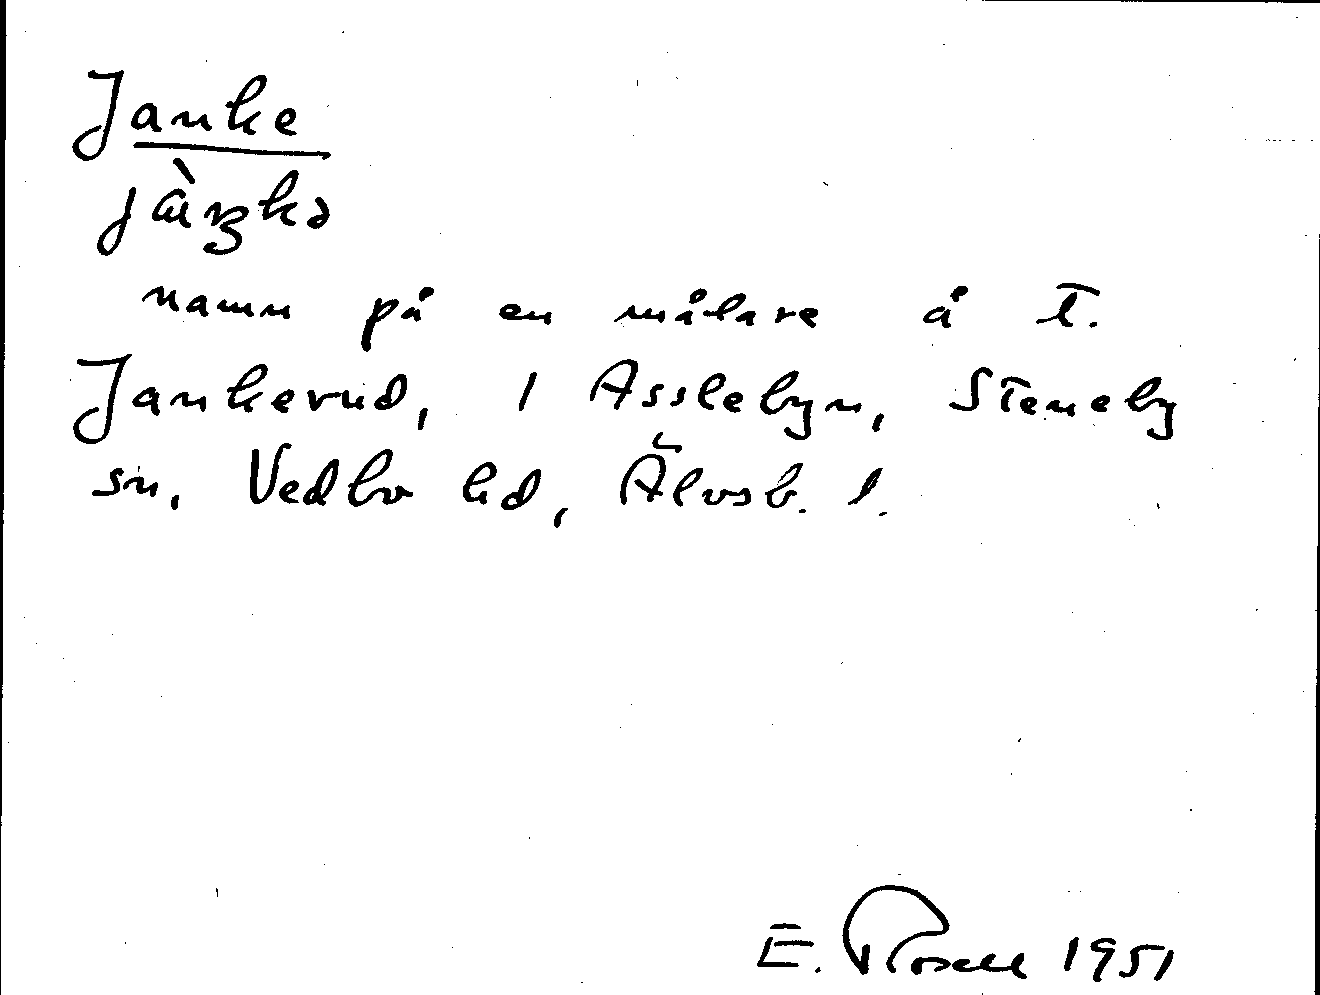 Janke
namn på en målare å t.
Jankerud, i Asslebyn, Steneby
sn, Vedbo hd, Älvsb. l.
E. Rosell 1951